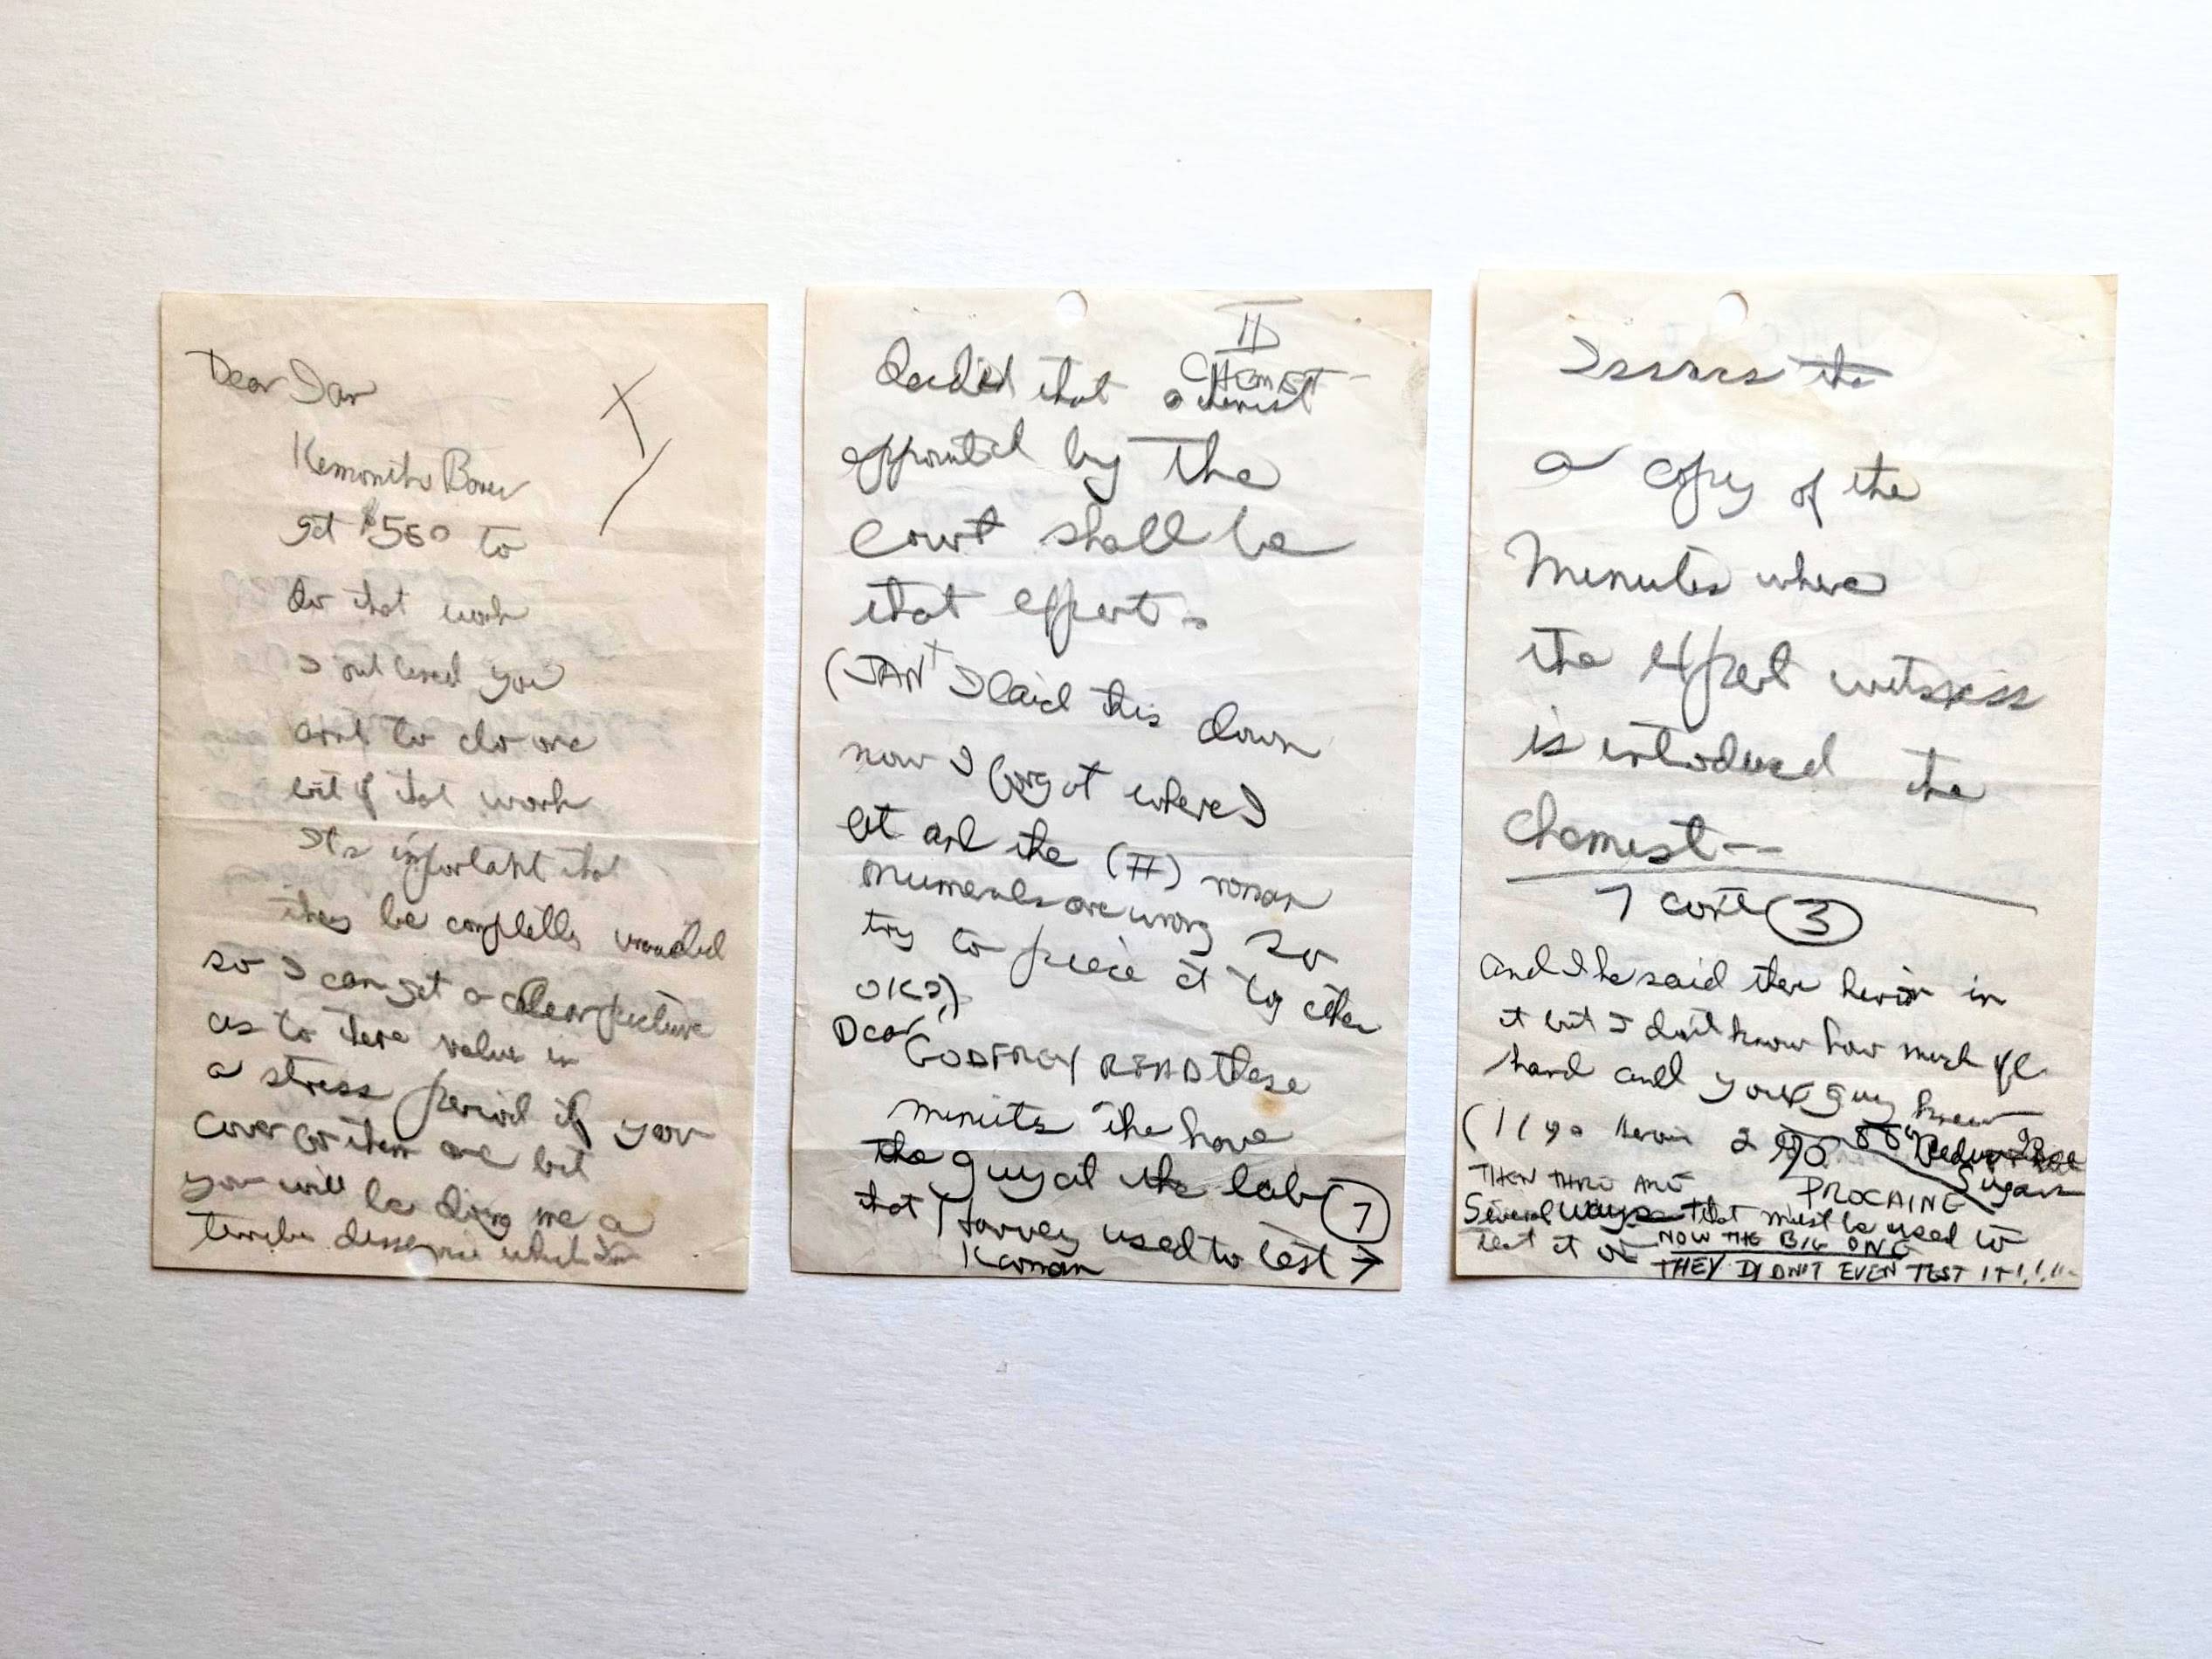 Dear Jan
get $550 to
do that work
I only need you
to do one
bit of that work
It's importaht that
they be
so I can get a clear picture
as to there value in
a stress period if you
cover for them one bit
you will be doing me a
which
II
CHEMIST
decided that a chemist
appointed by the
court shall be
that expert -
(JAN I laid this down
now I forgot where I
at and the (II) roman
numerals are wrong so
try to piece it together
OK?)
Dear GODFREY READ these
minits the have
the guy at the lab
that Harvey used to test →
7
Karman
the
a copy of the
Minutes where
the expert witness
is introduced the
chemist--
7 cont (3)
and he said there heroin in
it but I don't know how much
hand and your guy knew
PROCAINE
Sugar
THEN THERE ARE
Several ways that must be used to
test it
NOW THE BIG ONE
THEY DIDN'T EVEN TEST IT!!!!